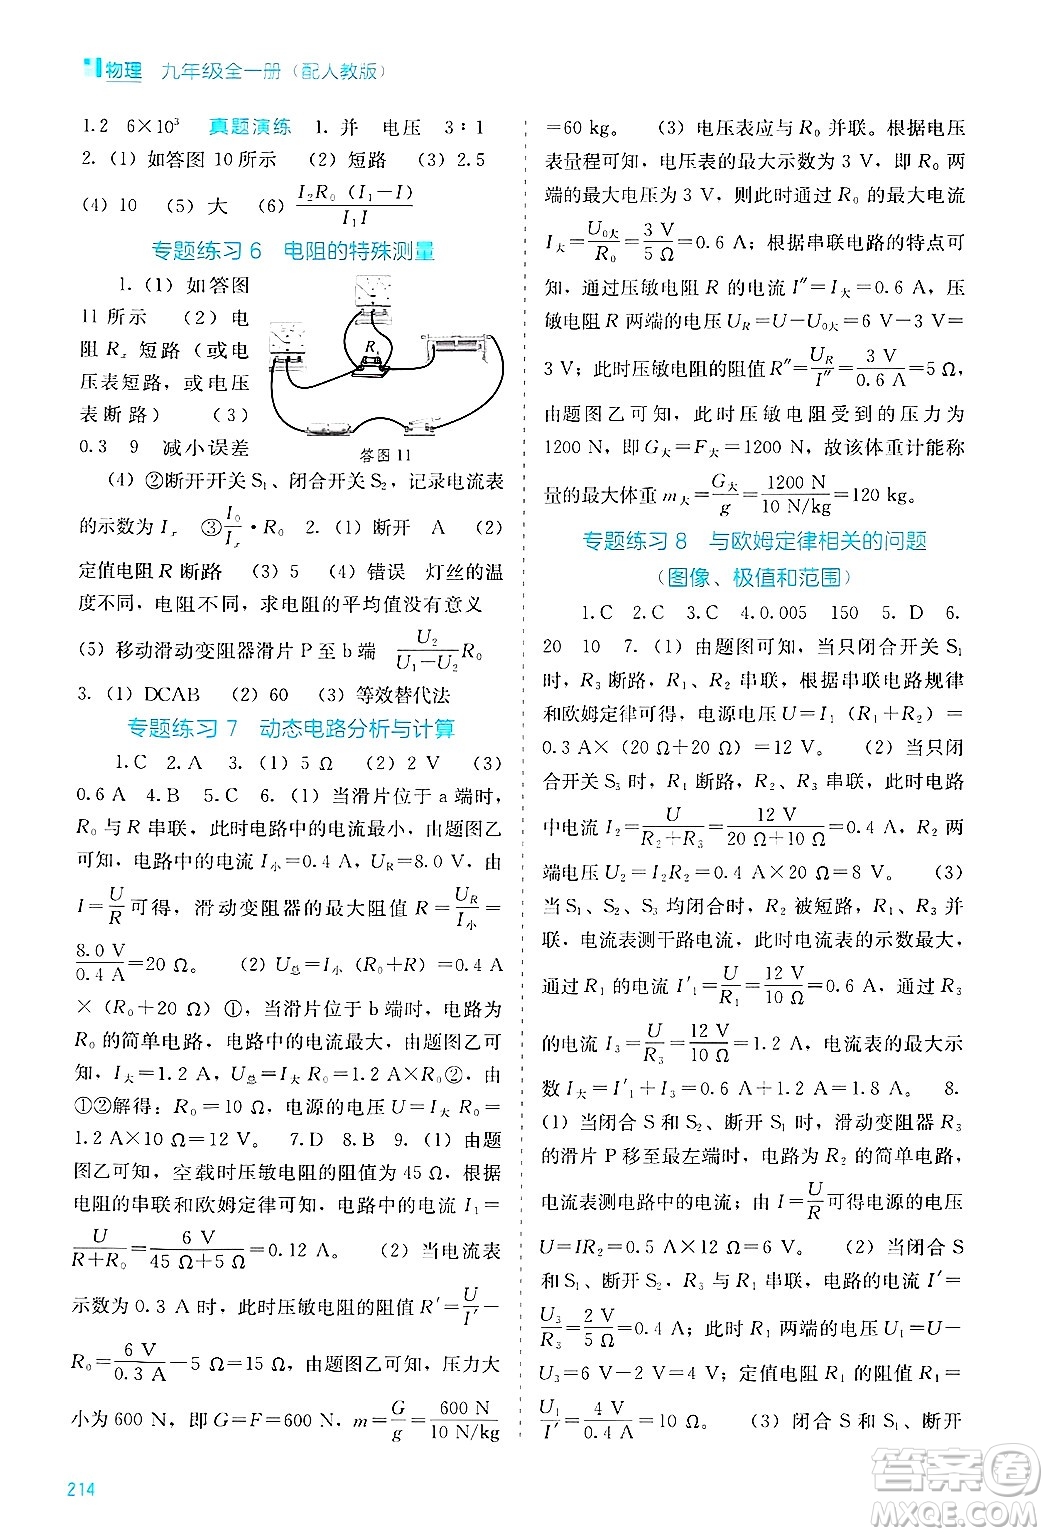 物理 九年级全一册（配人教版）
1.2 6×10³ 真题演练 1. 并 电压 3∶1
2.（1）如答图 10 所示 （2）短路 （3）2.5
（4）10 （5）大 （6）I₂R₀（I₁－I）/I₁I
专题练习 6 电阻的特殊测量
1.（1）如答图
11 所示 （2）电
阻 Rₓ 短路（或电
压表短路，或电压
表断路） （3）
0.3 9 减小误差
R₁
答图 11
（4）②断开开关 S₁、闭合开关 S₂，记录电流表
的示数为 Iₓ ③I₀/Iₓ·R₀ 2.（1）断开 A （2）
定值电阻 R 断路 （3）5 （4）错误 灯丝的温
度不同，电阻不同，求电阻的平均值没有意义
（5）移动滑动变阻器滑片 P 至 b 端 U₂/(U₁－U₂) R₀
3.（1）DCAB （2）60 （3）等效替代法
专题练习 7 动态电路分析与计算
1.C 2.A 3.（1）5 Ω （2）2 V （3）
0.6 A 4.B 5.C 6.（1）当滑片位于 a 端时，
R₀ 与 R 串联，此时电路中的电流最小，由题图乙
可知，电路中的电流 I小＝0.4 A，U_R＝8.0 V，由
I＝U/R 可得，滑动变阻器的最大阻值 R＝U_R/I小＝
8.0 V/0.4 A＝20 Ω。 （2）U总＝I小（R₀＋R）＝0.4 A
×（R₀＋20 Ω）①，当滑片位于 b 端时，电路为
R₀ 的简单电路，电路中的电流最大，由题图乙可
知，I大＝1.2 A，U总＝I大 R₀＝1.2 A×R₀②，由
①②解得：R₀＝10 Ω，电源的电压 U＝I大R₀＝
1.2 A×10 Ω＝12 V。 7.D 8.B 9.（1）由题
图乙可知，空载时压敏电阻的阻值为 45 Ω，根据
电阻的串联和欧姆定律可知，电路中的电流 I₁＝
U/(R＋R₀)＝6 V/(45 Ω＋5 Ω)＝0.12 A。 （2）当电流表
示数为 0.3 A 时，此时压敏电阻的阻值 R′＝U/I′－
R₀＝6 V/0.3 A－5 Ω＝15 Ω，由题图乙可知，压力大
小为 600 N，即 G＝F＝600 N，m＝G/g＝600 N/10 N/kg
＝60 kg。 （3）电压表应与 R₀ 并联。根据电压
表量程可知，电压表的最大示数为 3 V，即 R₀ 两
端的最大电压为 3 V，则此时通过 R₀ 的最大电流
I大＝U₀大/R₀＝3 V/5 Ω＝0.6 A；根据串联电路的特点可
知，通过压敏电阻 R 的电流 I″＝I大＝0.6 A，压
敏电阻 R 两端的电压 U_R＝U－U₀大＝6 V－3 V＝
3 V；此时压敏电阻的阻值 R″＝U_R/I″＝3 V/0.6 A＝5 Ω，
由题图乙可知，此时压敏电阻受到的压力为
1200 N，即 G大＝F大＝1200 N，故该体重计能称
量的最大体重 m大＝G大/g＝1200 N/10 N/kg＝120 kg。
专题练习 8 与欧姆定律相关的问题
（图像、极值和范围）
1.C 2.C 3.C 4.0.005 150 5.D 6.
20 10 7.（1）由题图可知，当只闭合开关 S₁
时，R₃ 断路，R₁、R₂ 串联，根据串联电路规律
和欧姆定律可得，电源电压 U＝I₁（R₁＋R₂）＝
0.3 A×（20 Ω＋20 Ω）＝12 V。 （2）当只闭
合开关 S₃ 时，R₁ 断路，R₂、R₃ 串联，此时电路
中电流 I₂＝U/(R₂＋R₃)＝12 V/(20 Ω＋10 Ω)＝0.4 A，R₂ 两
端电压 U₂＝I₂R₂＝0.4 A×20 Ω＝8 V。 （3）
当 S₁、S₂、S₃ 均闭合时，R₂ 被短路，R₁、R₃ 并
联，电流表测干路电流，此时电流表的示数最大，
通过 R₁ 的电流 I′₁＝U/R₁＝12 V/20 Ω＝0.6 A，通过 R₃
的电流 I₃＝U/R₃＝12 V/10 Ω＝1.2 A，电流表的最大示
数 I大＝I′₁＋I₃＝0.6 A＋1.2 A＝1.8 A。 8.
（1）当闭合 S 和 S₂、断开 S₁，滑动变阻器 R₃
的滑片 P 移至最左端时，电路为 R₂ 的简单电路，
电流表测电路中的电流；由 I＝U/R 可得电源的电压
U＝IR₂＝0.5 A×12 Ω＝6 V。 （2）当闭合 S
和 S₁、断开 S₂ 时，R₃ 与 R₁ 串联，电路的电流 I′＝
U₃/R₃＝2 V/5 Ω＝0.4 A；此时 R₁ 两端的电压 U₁＝U－
U₃＝6 V－2 V＝4 V；定值电阻 R₁ 的阻值 R₁＝
U₁/I′＝4 V/0.4 A＝10 Ω。 （3）闭合 S 和 S₁、断开
214
答案圈
MXQE.COM